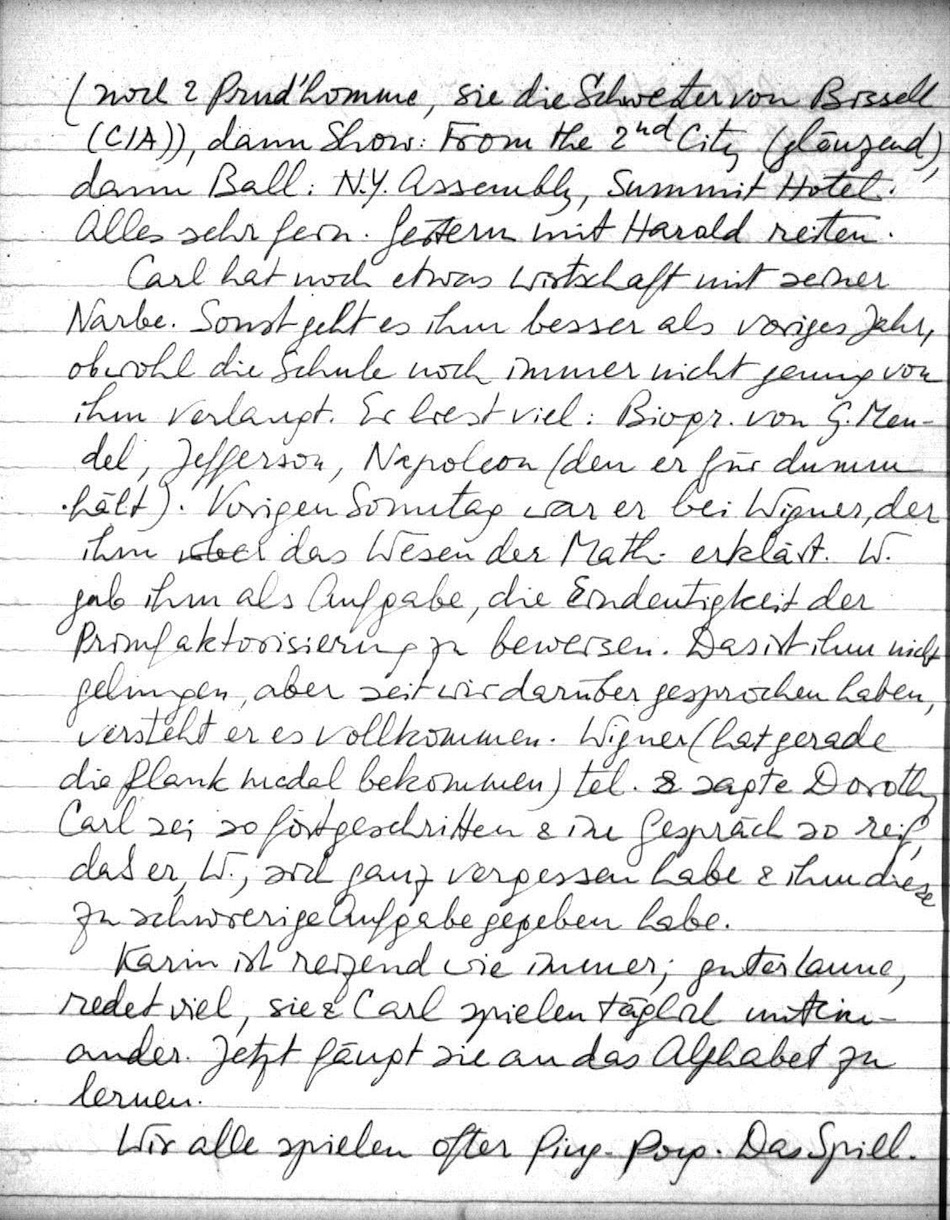 (noch 2 Prud'homme, sie die Schwester von Bissell
(CIA)), dann Show: From the 2nd City (glänzend),
dann Ball: N.Y. Assembly, Summit Hotel.
Alles sehr fein. Gestern mit Harald reiten.
Carl hat noch etwas Wirtschaft mit seiner
Narbe. Sonst geht es ihm besser als voriges Jahr,
obwohl die Schule noch immer nicht genug von
ihm verlangt. Er liest viel: Biogr. von G. Men-
del, Jefferson, Napoleon (den er für dumm
hält). Vorigen Sonntag war er bei Wigner, der
ihm das Wesen der Math. erklärt. W.
gab ihm als Aufgabe, die Eindeutigkeit der
Primfaktorisierung zu beweisen. Das ist ihm nicht
gelungen, aber seit wir darüber gesprochen haben,
versteht er es vollkommen. Wigner (hat gerade
die Plank medal bekommen) tel. & sagte Dorothy
Carl sei so fortgeschritten & im Gespräch so reif,
daß er, W., sich ganz vergessen habe & ihm diese
zu schwierige Aufgabe gegeben habe.
Karin ist reizend wie immer; guter laune,
redet viel, sie & Carl spielen täglich mitein-
ander. Jetzt fängt sie an das Alphabet zu
lernen.
Wir alle spielen öfter Ping-Pong. Das Spiel.